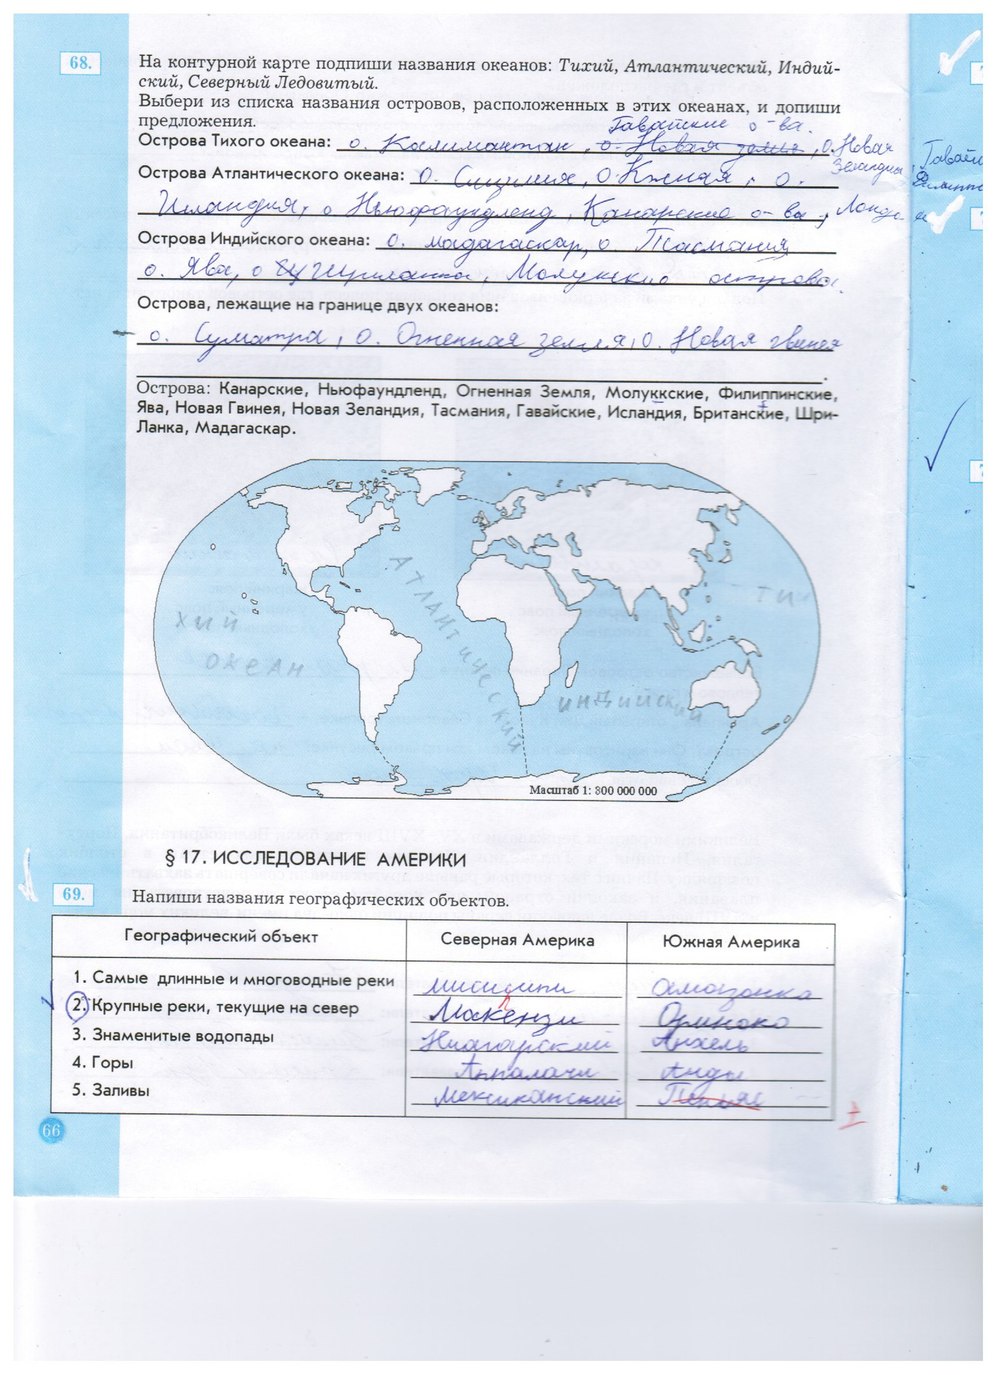 68.
На контурной карте подпиши названия океанов: Тихий, Атлантический, Индий-
ский, Северный Ледовитый.
Выбери из списка названия островов, расположенных в этих океанах, и допиши
предложения.
Гавайские о-ва.
Острова Тихого океана: о. Калимантан, о. Новая земля, о. Новая
Зеландия,
Острова Атлантического океана: о. Сицилия, о. Южная, о.
Исландия, о Ньюфаундленд, Канарские о-ва,
Острова Индийского океана: о. мадагаскар, о. Тасмания
о. Ява, о Молукские острова.
Острова, лежащие на границе двух океанов:
о. Суматра, о. Огненная земля, о. Новая гвинея
Острова: Канарские, Ньюфаундленд, Огненная Земля, Молуккские, Филиппинские,
Ява, Новая Гвинея, Новая Зеландия, Тасмания, Гавайские, Исландия, Британские, Шри-
Ланка, Мадагаскар.
АТЛАНТИЧЕСКИЙ
ТИ
ХИЙ
ОКЕАН
ИНДИЙСКИЙ
Масштаб 1: 300 000 000
§ 17. ИССЛЕДОВАНИЕ АМЕРИКИ
69.
Напиши названия географических объектов.
Географический объект Северная Америка Южная Америка
1. Самые длинные и многоводные реки мисисипи амазонка
2. Крупные реки, текущие на север Макензи Ориноко
3. Знаменитые водопады Ниагарский Анхель
4. Горы Аппалачи Анды
5. Заливы Мексиканский
66